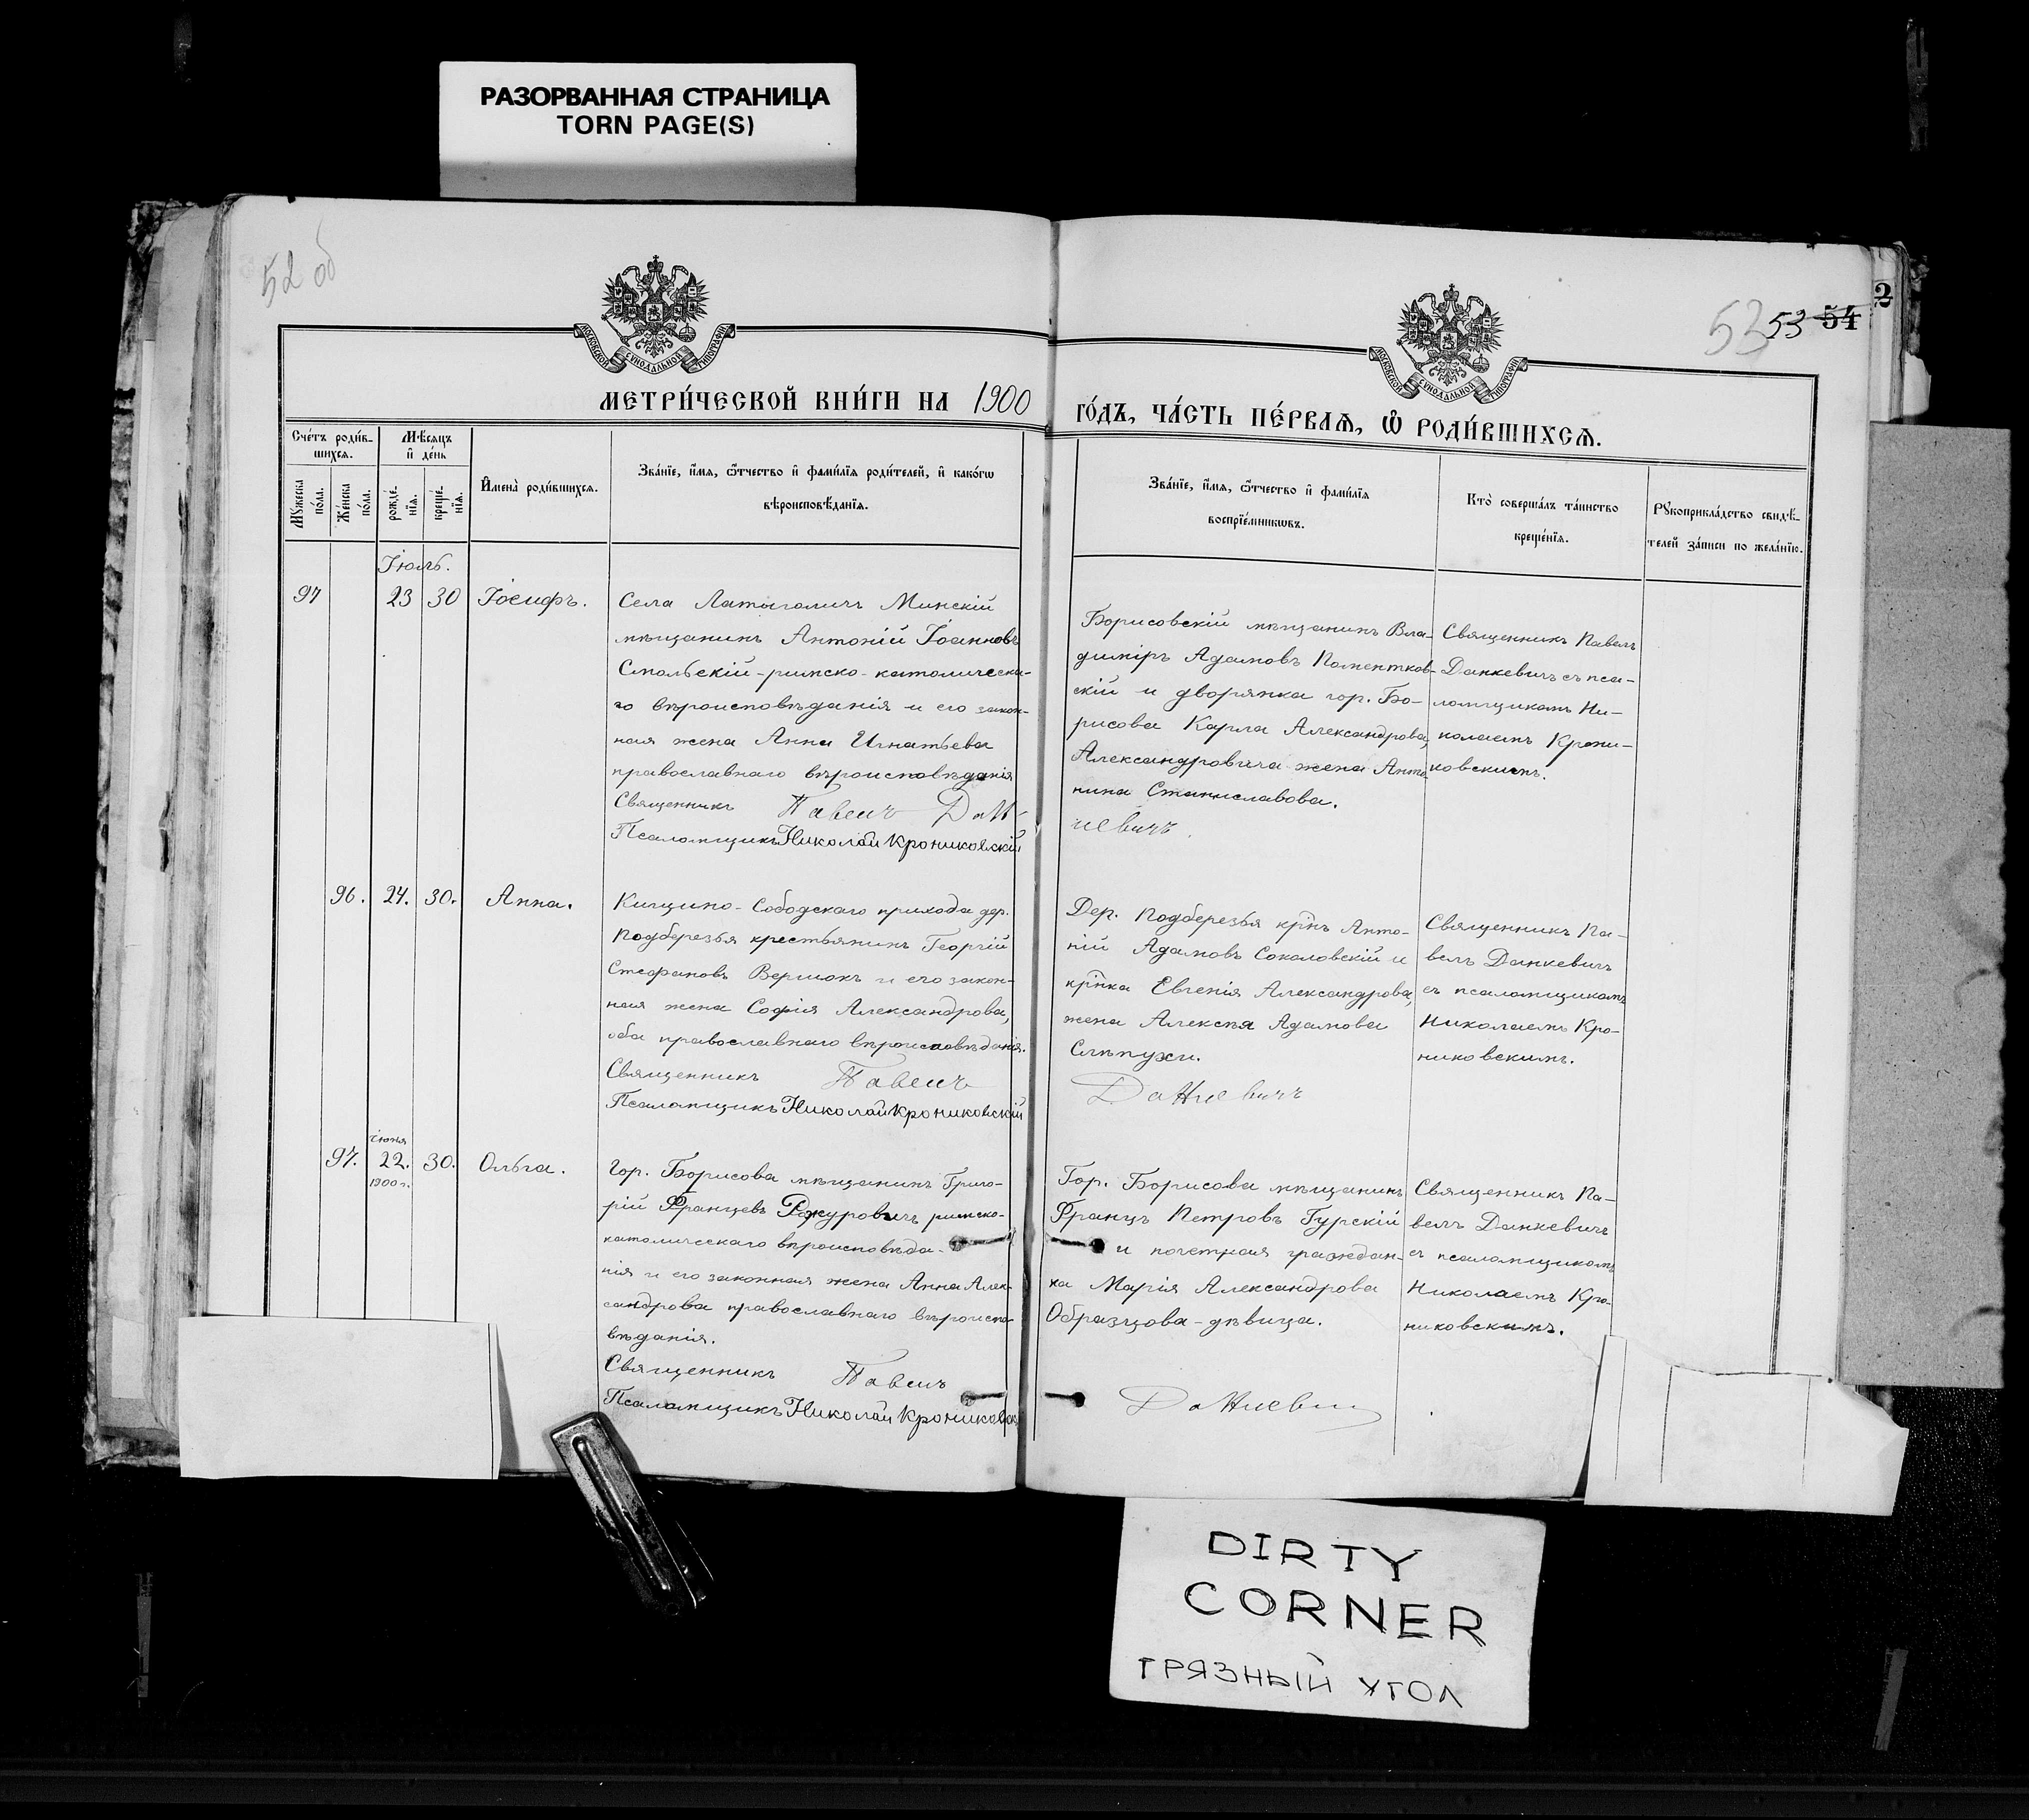 РАЗОРВАННАЯ СТРАНИЦА
TORN PAGE(S)
52 об
53 53 54
2
МОСКОВСКОЙ СѴНОДАЛЬНОЙ ТИПОГРАФІИ
МОСКОВСКОЙ СѴНОДАЛЬНОЙ ТИПОГРАФІИ
МЕТРИ́ЧЕСКОЙ КНИ́ГИ НА 1900 ГО́ДЪ, ЧА́СТЬ ПЕ́РВАѦ, Ѽ РОДИ́ВШИХСѦ.
Сче́тъ роди́в-
шихсѧ.
Мѣ́сѧцъ
и҆ де́нь
Мꙋ́жеска
по́ла.
Же́нска
по́ла.
рожде́-
нїѧ.
креще́-
нїѧ.
И҆мена̀ роди́вшихсѧ.
Зва́нїе, и҆́мѧ, ѻ҆́тчество и҆ фами́лїѧ роди́телей, и҆ како́гѡ
вѣроисповѣ́данїѧ.
Зва́нїе, и҆́мѧ, ѻ҆́тчество и҆ фами́лїѧ
воспрїе́мникѡвъ.
Кто̀ соверша́лъ та́инство
креще́нїѧ.
Рꙋкоприкла́дство свидѣ́-
телей за́писи по жела́нїю.
Іюль.
97 23 30 Іосифъ.
Села Латыголичъ Минскій
мѣщанинъ Антоній Іоанновъ
Смольскій-римско-католическа-
го вѣроисповѣданія и его закон-
ная жена Анна Игнатьева
православнаго вѣроисповѣданія
Священникъ Павелъ Дан-
Псаломщикъ Николай Крониковскій
Борисовскій мѣщанинъ Вла-
диміръ Адамовъ Поментков-
скій и дворянка гор. Бо-
рисова Карла Александрова,
Александровича жена Анто-
нина Станиславова.
кевичъ.
Священникъ Павелъ
Данкевичъ съ пса-
ломщикомъ Ни-
колаемъ Крони-
ковскимъ.
96. 24. 30. Анна.
Кищино-Слободскаго прихода дер.
Подберезья крестьянинъ Георгій
Стефановъ Вершокъ и его закон-
ная жена Софія Александрова,
оба православнаго вѣроисповѣданія.
Священникъ Павелъ
Псаломщикъ Николай Крониковскій
Дер. Подберезья крⷭ҇нъ Анто-
ній Адамовъ Соколовскій и
крⷭ҇нка Евгенія Александрова,
жена Алексѣя Адамова
Слѣпухи.
Данкевичъ
Священникъ Па-
велъ Данкевичъ
съ псаломщикомъ
Николаемъ Кро-
никовскимъ.
іюня
97. 22. 30. Ольга.
1900 г.
Гор. Борисова мѣщанинъ Григо-
рій Францевъ римско-
католическаго вѣроисповѣда-
нія и его законная жена Анна Алек-
сандрова православнаго вѣроиспо-
вѣданія.
Священникъ Павелъ
Псаломщикъ Николай Крониковск
Гор. Борисова мѣщанинъ
Францъ Петровъ Гурскій
и почетная граждан-
ка Марія Александрова
Образцова-дѣвица.
Данкевич
Священникъ Па-
велъ Данкевичъ
съ псаломщикомъ
Николаемъ Кро-
никовскимъ.
DIRTY
CORNER
ГРЯЗНЫЙ УГОЛ